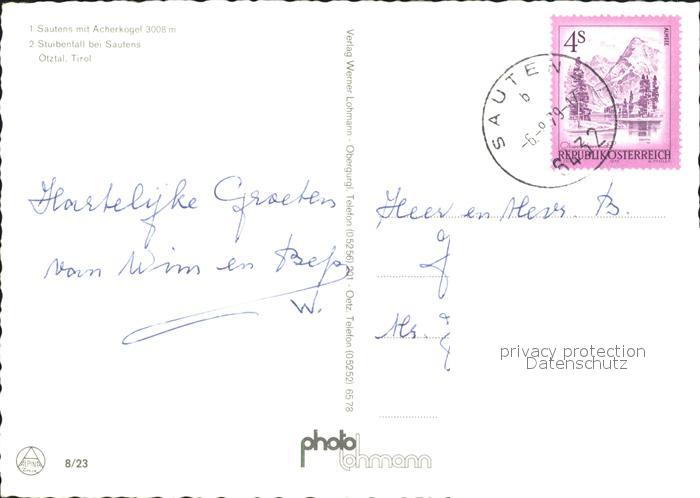 1 Sautens mit Acherkogel 3008 m
2 Stuibenfall bei Sautens
Ötztal, Tirol
Verlag Werner Lohmann · Obergurgl, Telefon (05256) 201 · Oetz, Telefon (05252) 6578
4S
ALMSEE
REPUBLIK ÖSTERREICH
SAUTEN
b
-6.-9.79
6432
Hartelijke Groeten
van Wim en Bep
W.
Heer en Mevr. B.
privacy protection
Datenschutz
ALPINA
8/23
photo
lohmann